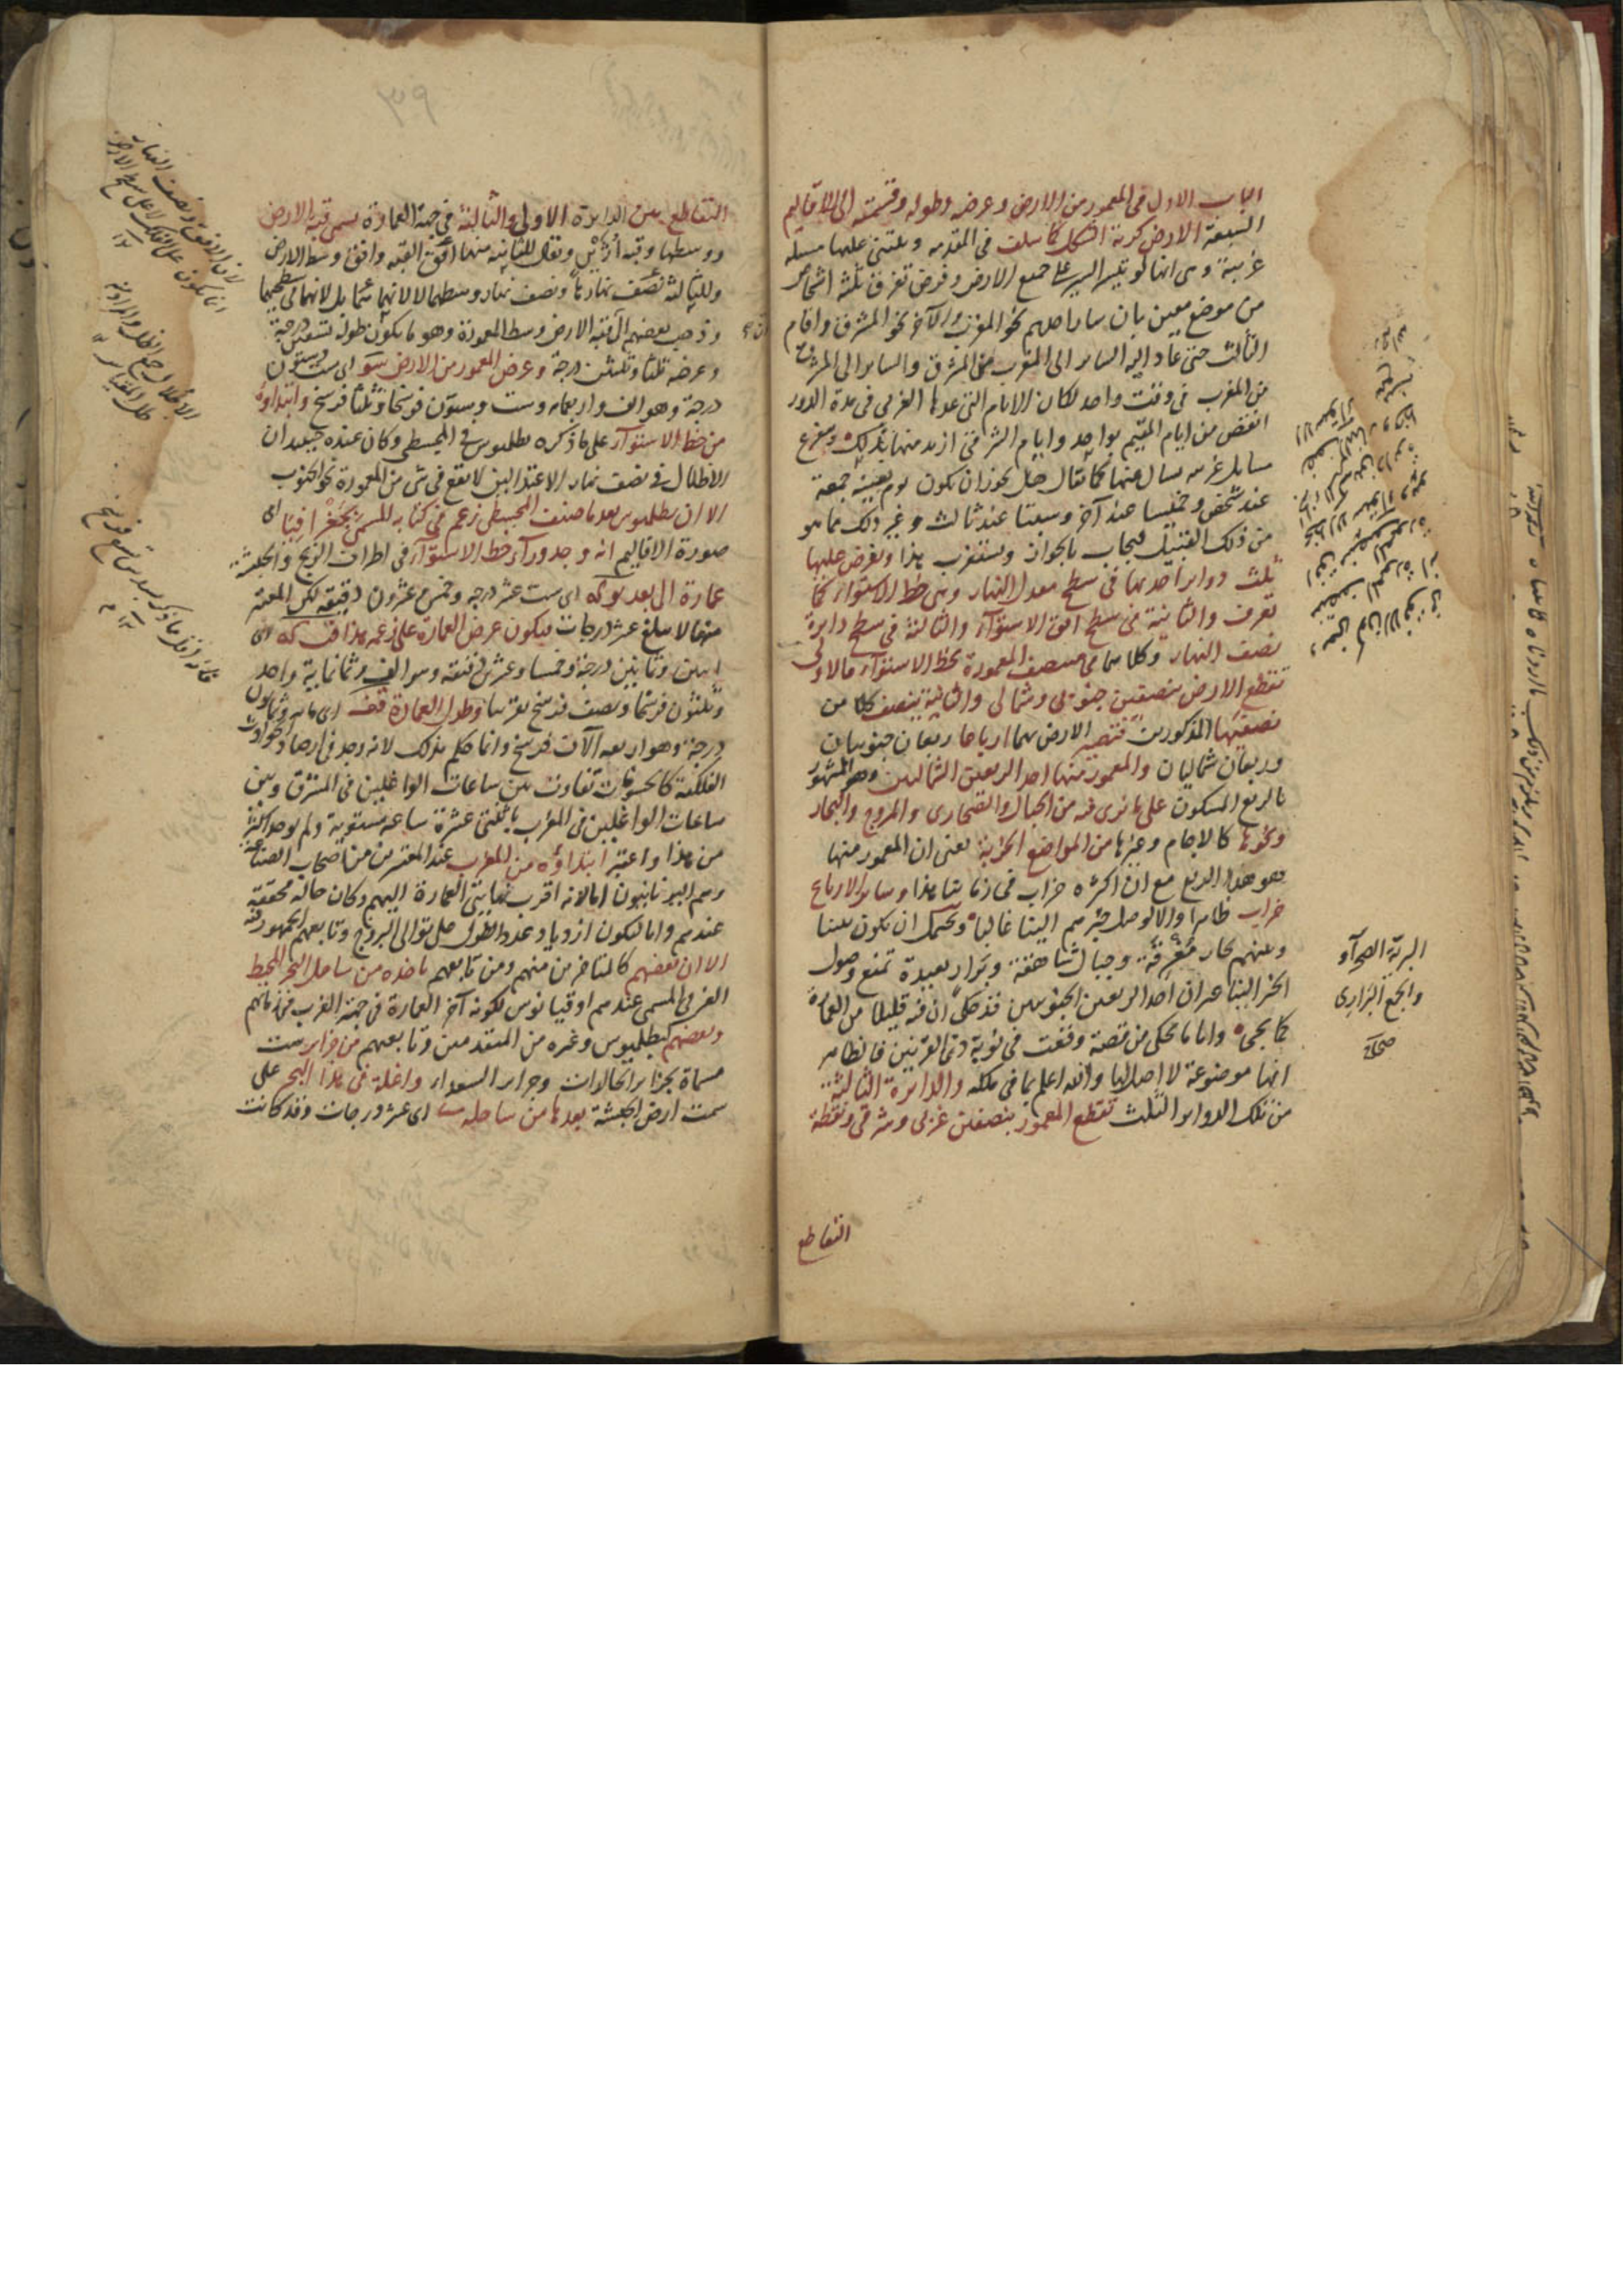 الباب الاول فى المعمور من الارض وعرضه وطوله وقسمته الى الاقاليم
السبعة الارض كرية الشكل كما سلف فى المقدمة ويبتنى عليها مسئلة
غريبة وهى انها لو تيسر السير على جميع الارض وفرض تفرق ثلثة اشخاص
من موضع معين بان سار احدهم نحو المغرب والآخر نحو المشرق واقام
الثالث حتى عاد اليه الساير الى المغرب من المشرق والساير الى المشرق
من المغرب فى وقت واحد لكان الايام التى عدها الغربى فى مدة الدور
انقص من ايام المقيم بواحد وايام الشرقى ازيد منها بذلك ويتفرع
مسايل غريبة يسال عنها كما يقال هل يجوز ان يكون يوم بعينه جمعة
عند شخص وخميسا عند آخر وسبتا عند ثالث وغير ذلك مما هو
من ذلك القبيل فيجاب بالجواز ويستغرب هذا ويفرض عليها
ثلث دواير احديها فى سطح معدل النهار وهى خط الاستواء كما
تعرف والثانية فى سطح افق الاستواء والثالثة فى سطح دايرة
نصف النهار وكلاهما فى منتصف المعمورة بخط الاستواء فالاولى
تقطع الارض بنصفين جنوبى وشمالى والثانية بنصف كلا من
نصفيها المذكورين فتصير الارض بهما ارباعا ربعان جنوبيان
وربعان شماليان والمعمور منها احد الربعين الشماليين وهو المشهور
بالربع المسكون على ما نرى فيه من الجبال والصحارى والمروج والبحار
ونحوها كالاجام وغيرها من المواضع الخربة يعنى ان المعمور منها
هو هذا الربع مع ان اكثره خراب فى زماننا هذا وساير الارباع
خراب ظاهرا والا لوصل خبرهم الينا غالبا ويحتمل ان يكون بيننا
وبينهم بحار مغرقة وجبال شاهقة وبرار بعيدة تمنع وصول
الخبر الينا غير ان احد الربعين الجنوبيين قد حكى ان فيه قليلا من العمارة
كما يجىء واما ما يحكى من قصة وقعت فى نوبة ذى القرنين فالظاهر
انها موضوعة لا اصل لها والله اعلم بما فى ملكه والدايرة الثالثة
من تلك الدواير الثلث تقطع المعمور بنصفين غربى وشرقى ونقطة
التقاطع
البرية الصحراء
والجمع البرارى
صحاح
٣٩
التقاطع بين الدايرة الاولى والثالثة فى جهة العمارة يسمى قبة الارض
ووسطها وقبة ازين ويقال للثانية منها افق القبة وافق وسط الارض
وللثالثة نصف نهارها ونصف نهار وسطها لا لانهما هما بل لانهما فى سطحيهما
وذهب بعضهم الى ان قبة الارض وسط المعمورة وهو ما يكون طوله تسعين درجة
وعرضه ثلثا وثلثين درجة وعرض المعمور من الارض سو اى ست وستون
درجة وهو الف واربعمايه وست وستون فرسخا وثلثا فرسخ وابتداؤه
من خط الاستواء على ما ذكره بطلميوس فى المجسطى وكان عنده حينئذ ان
الاظلال فى نصف نهار الاعتدالين لا تقع فى شى من المعمورة نحو الجنوب
الا ان بطلميوس بعد ما صنف المجسطى زعم فى كتابه المسمى بجغرافيا اى
صورة الاقاليم انه وجد وراء خط الاستواء فى اطراف الزنج والحبشة
عمارة الى بعد يو كه اى ست عشر درجة وخمس وعشرون دقيقة لكن المعتبر
منها لا يبلغ عشر درجات فيكون عرض العمارة على زعمه هذا فب كه اى
اثنين وثمانين درجة وخمسا وعشرين دقيقة وهو الف وثمانماية واحد
وثلثون فرسخا ونصف فرسخ تقريبا وطول العمارة قف اى ماية وثمانون
درجة وهو اربعة آلاف فرسخ وانما حكم بذلك لانه وجد فى ارصاد الحوادث
الفلكية كالخسوفات تفاوت بين ساعات الواغلين فى المشرق وبين
ساعات الواغلين فى المغرب باثنتى عشرة ساعة مستوية ولم يوجد اكثر
من هذا واعتبر ابتداؤه من المغرب عند المعتبرين من اصحاب الصناعة
وهم اليونانيون اما لانه اقرب نهايتى العمارة اليهم وكان حاله محققة
عندهم واما لتكون ازدياد عدد الطول على توالى البروج وتابعهم الجمهور فيه
الا ان بعضهم كالمتاخرين منهم ومن تابعهم ياخذه من ساحل البحر المحيط
الغربى المسمى عندهم اوقيانوس لكونه آخر العمارة فى جهة الغرب فى زمانهم
وبعضهم كبطلميوس وغيره من المتقدمين وتابعهم من جزاير ست
مسماة بجزاير الخالدات وجزاير السعداء واغلة فى هذا البحر على
سمت ارض الحبشة بعدها من ساحله ى اى عشر درجات وقد كانت
لان الافق ونصف النهار
انما يكون على الفلك لا على سطح الارض
الاظلال جمع الظل والمراد به
ظل المقياس